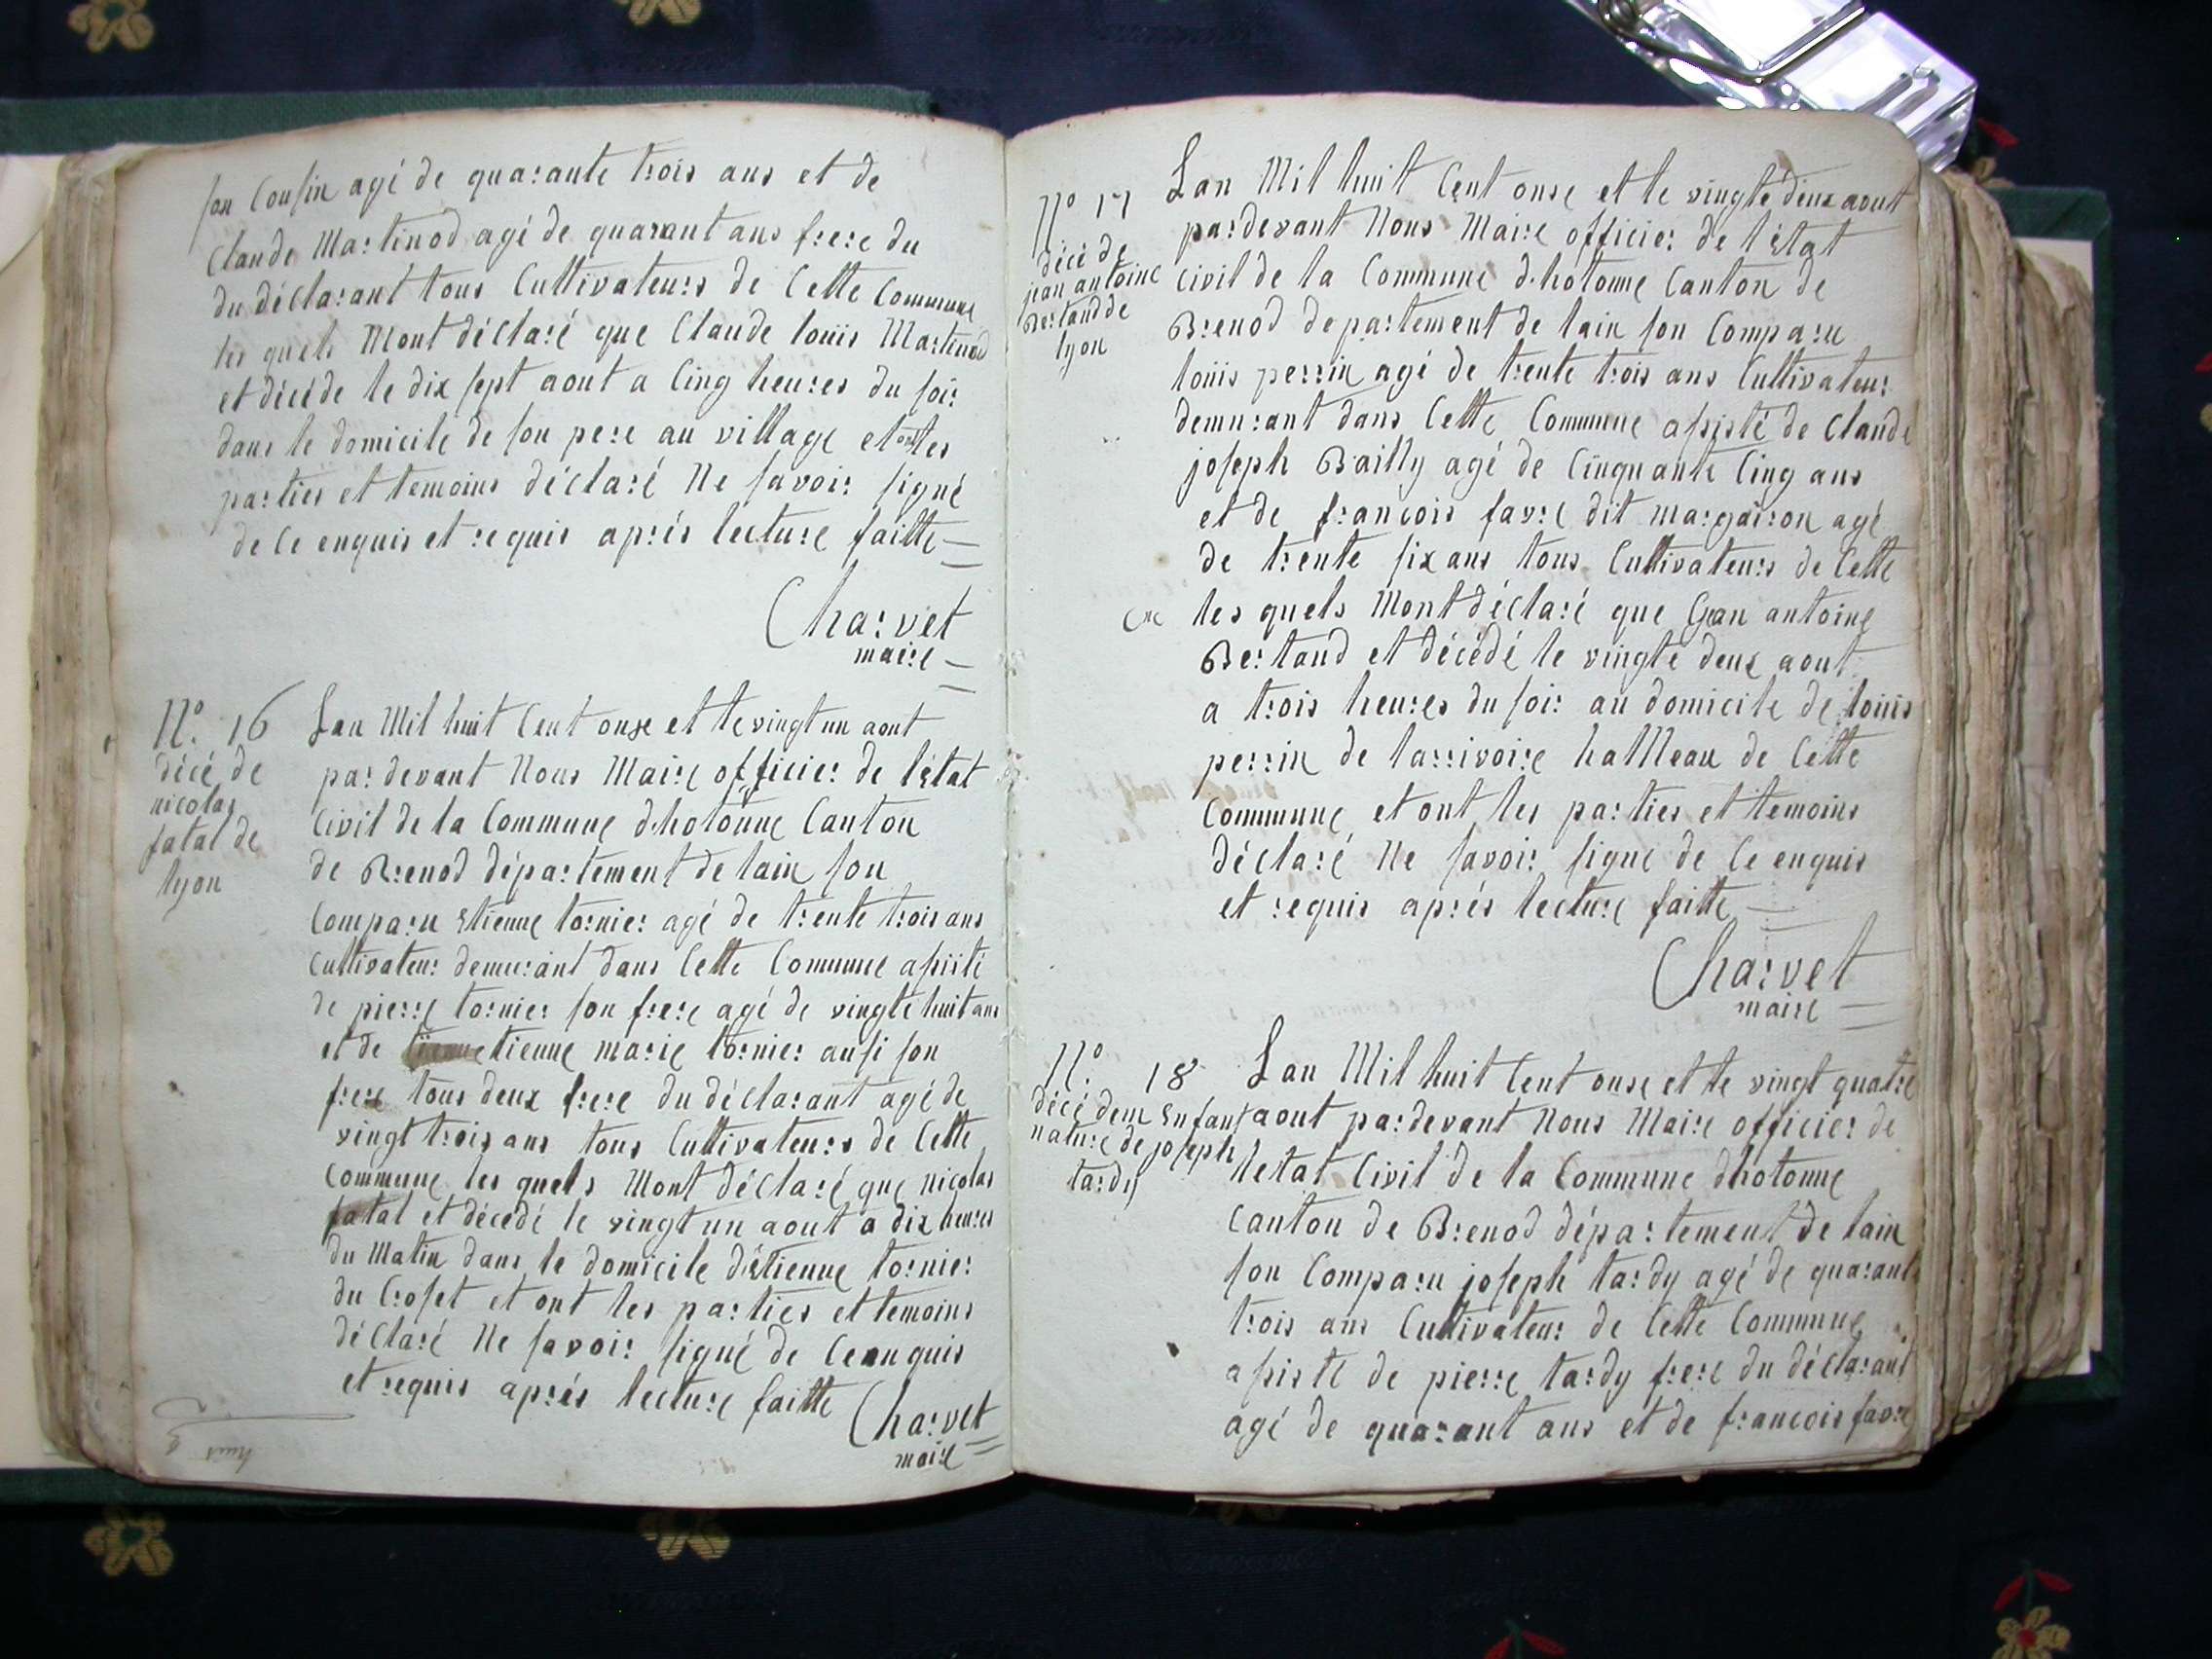 son Cousin agé de quarante trois ans et de
Claude Martinod agé de quarant ans frere du
du déclarant tous Cultivateurs de Cette Commune
les quels Mont déclaré que Claude louis Martinod
et décéde le dix sept aout a Cinq heures du soir
dans le domicile de son pere au village et ont les
parties et temoins déclaré Ne savoir signé
de Ce enquis et requis aprés lecture faitte
Charvet
maire
N.º 16
décé de
nicolas
fatal de
lyon
Lan Mil huit Cent onse et le vingt un aout
par devant Nous Maire officier de létat
Civil de la Commune d.hotonne Canton
de Brenod département de lain son
Comparu Etienne tornier agé de trente trois ans
Cultivateur demurant dans Cette Commune asisté
de pierre tornier son frere agé de vingte huit ans
et de tienne marie tornier ausi son
frere tous deux frere du déclarant agé de
vingt trois ans tous Cultivateurs de Cette
Commune les quels Mont déclaré que nicolas
fatal et décédé le vingt un aout a dix heures
du Matin dans le domicile détienne tornier
du Croset et ont les parties et temoins
déclaré Ne savoir signé de Ce enquis
et requis aprés lecture faitte
Charvet
maire
huit
Nº 17
décé de
jean antoine
Bertand de
lyon
Lan Mil huit Cent onse et le vingte deux aout
pardevant Nous Maire officier de létat
Civil de la Commune d.hotonne Canton de
Brenod departement de lain son Comparu
louis perrin agé de trente trois ans Cultivateur
demurant dans Cette Commune asisté de Claude
joseph Bailly agé de Cinquante Cinq ans
et de francois favre dit margairon agé
de trente six ans tous Cultivateurs de Cette
Cne les quels Mont déclaré que Gean antoine
Bertand et décédé le vingte deux aout
a trois heures du soir au domicile de louis
perrin de larrivoire haMeau de Cette
Commune et ont les parties et temoins
déclaré Ne savoir signe de Ce enquis
et requis aprés lecture faitte
Charvet
maire
N.º 18
décé dem Enfant
nature de joseph
tardy
Lan Mil huit Cent onse et le vingt quatre
aout pardevant Nous Maire officier de
letat Civil de la Commune dhotonne
Canton de Brenod département de lain
son Comparu joseph tardy agé de quarante
trois ans Cultivateur de Cette Commune
asiste de pierre tardy frere du déclarant
agé de quarant ans et de francois favre